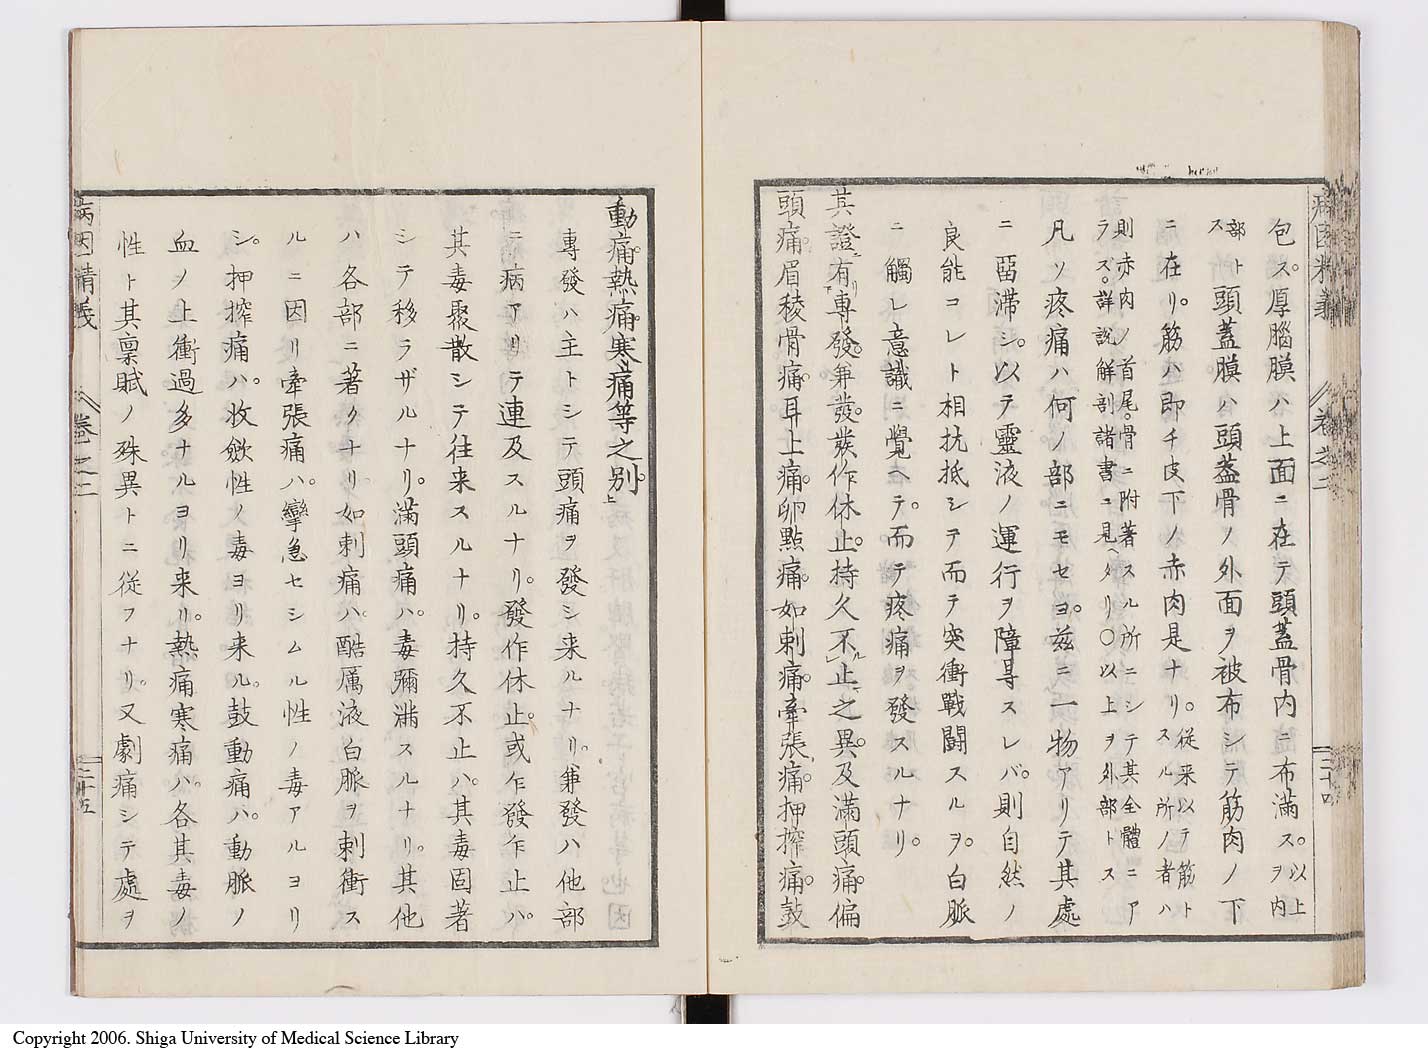 病因精義 卷之二 二十四
包ス。厚腦膜ハ上面ニ在テ頭蓋骨内ニ布滿ス。以上ヲ内
部トス頭蓋膜ハ頭蓋骨ノ外面ヲ被布シテ筋肉ノ下
ニ在リ。筋ハ即チ皮下ノ赤肉是ナリ。従来以テ筋トスル所ノ者ハ
則赤内ノ首尾。骨ニ附著スル所ニシテ其全體ニア
ラズ。詳説解剖諸書ニ見ヘタリ〇以上ヲ外部トス
凡ソ疼痛ハ何ノ部ニモセヨ。茲ニ一物アリテ其處
ニ畱滞シ。以テ靈液ノ運行ヲ障㝵スレバ。則自然ノ
良能コレト相抗抵シテ而テ突衝戰闘スルヲ。白脈
ニ觸レ意識ニ覺ヘテ。而テ疼痛ヲ發スルナリ。
其證有リ專發。兼發。發作休止。持久不止之異。及滿頭痛。偏
頭痛。眉稜骨痛。耳上痛。卵點痛。如刺痛。牽張痛。押搾痛。鼓
動痛。熱痛。寒痛等之別。上
專發ハ主トシテ頭痛ヲ發シ来ルナリ。兼發ハ他部
ニ病アリテ連及スルナリ。發作休止。或乍發乍止ハ。
其毒聚散シテ往来スルナリ。持久不止ハ。其毒固著
シテ移ラザルナリ。滿頭痛ハ。毒彌滿スルナリ。其他
ハ各部ニ著クナリ。如刺痛ハ。酷厲液白脈ヲ刺衝ス
ルニ因リ牽張痛ハ。攣急セシムル性ノ毒アルヨリ
シ。押搾痛ハ。收斂性ノ毒ヨリ来ル。鼓動痛ハ。動脈ノ
血ノ上衝過多ナルヨリ来リ。熱痛寒痛ハ。各其毒ノ
性ト其稟賦ノ殊異トニ従フナリ。又劇痛シテ處ヲ
病因精義 卷之二 二十五
Copyright 2006. Shiga University of Medical Science Library